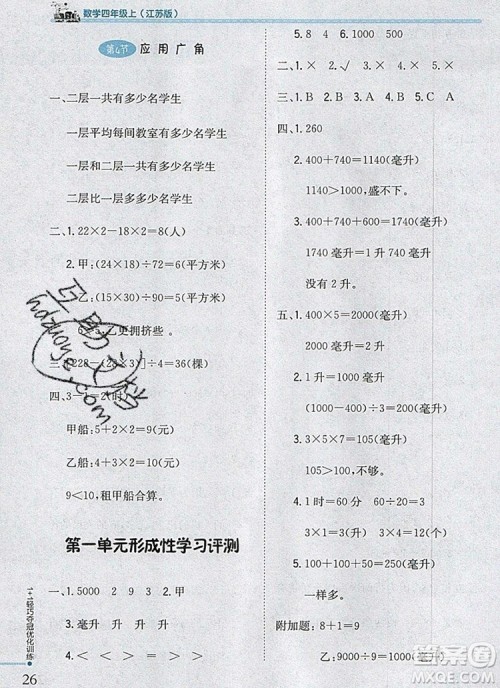 数学四年级上（江苏版）
第4节 应用广角
一、二层一共有多少名学生
一层平均每间教室有多少名学生
一层和二层一共有多少名学生
二层比一层多多少名学生
二、1.22×2－18×2＝8(人)
2.甲：(24×18)÷72＝6(平方米)
乙：(15×30)÷90＝5(平方米)
6＞5,乙更拥挤些。
三、[228－(28×3)]÷4＝36(棵)
四、3－1＝2(时)
甲船：5＋2＋2＝9(元)
乙船：4＋3×2＝10(元)
9＜10,租甲船合算。
第一单元形成性学习评测
一、1.5000 2 9 3 2.甲
3.毫升 升 升 升
4.＜ ＜ ＞ ＞ ＞ ＞
5.8 4 6.1000 500
二、1.× 2.× 3.√ 4.× 5.√
三、1.B 2.A 3.B 4.A 5.C
四、1.260
2.400＋740＝1140(毫升)
1140＞1000,盛不下。
3.400＋400＋600＋340＝1740(毫升)
1740毫升＝1升740毫升
没有2升。
五、1.400×5＝2000(毫升)
2000毫升＝2升
2.1升＝1000毫升
(1000－400)÷3＝200(毫升)
3.3×5＋3×50＝165(毫升)
165＞160,不够。
4.1时＝60分 60÷20＝3
3×3＝9(毫升) 3×1＝3(毫升)
答略。
5.2升＝2000毫升 1升＝1000毫升
2000－210×6＝740(毫升)
1000－330×2＝340(毫升)
740＞340
小美的多一些。
附加题：8＋1＝9
乙：9000÷9＝1000(毫升)
1+1轻巧夺冠优化训练
26
答案圈
MXQE.COM